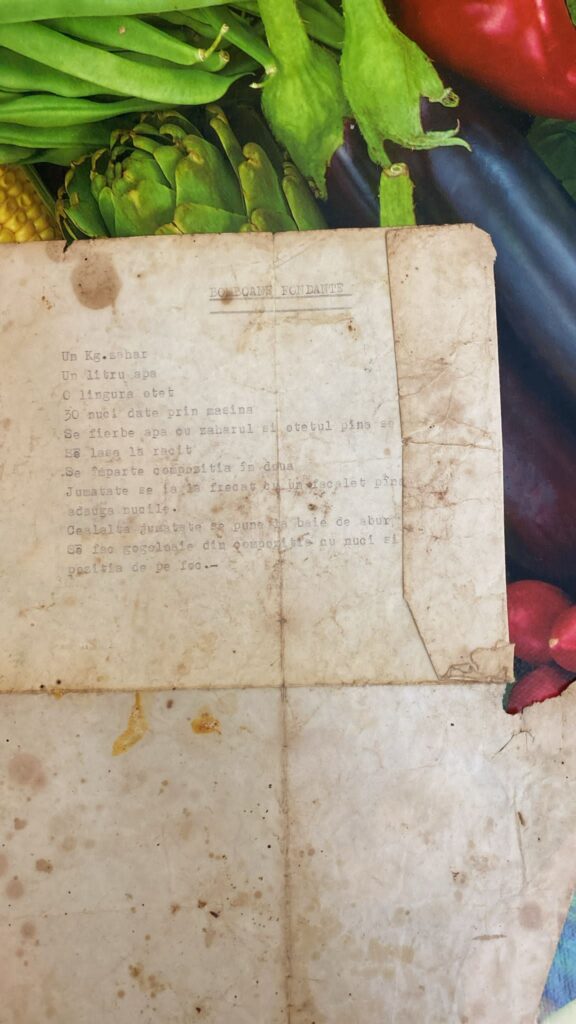 BOMBOANE FONDANTE
Un Kg.zahar
Un litru apa
O lingura otet
30 nuci date prin masina
Se fierbe apa cu zaharul si otetul pina se
Se lasa la racit
Se imparte compozitia in doua
Jumatate se ia la frecat cu un facalet pina
adauga nucile.
Cealalta jumatate se pune la baie de abur
Se fac gogoloaie din compozitia cu nuci si
pozitia de pe foc.—